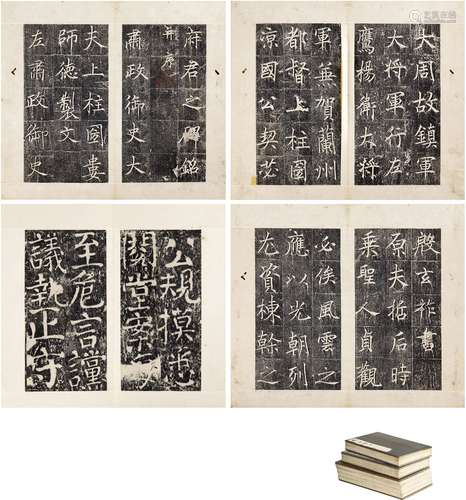 大周故鎮軍
大將軍行左
鷹楊衛大將
軍兼賀蘭州
都督上柱國
涼國公契苾
府君之碑銘
并序
肅政御史大
夫上柱國婁
師德製文
左肅政御史
殷玄祚書
原夫括后時
乘聖人貞觀
必俟風雲之
應以光朝列
尤資棟榦之
公規摸悉
至危言讜
議執正守